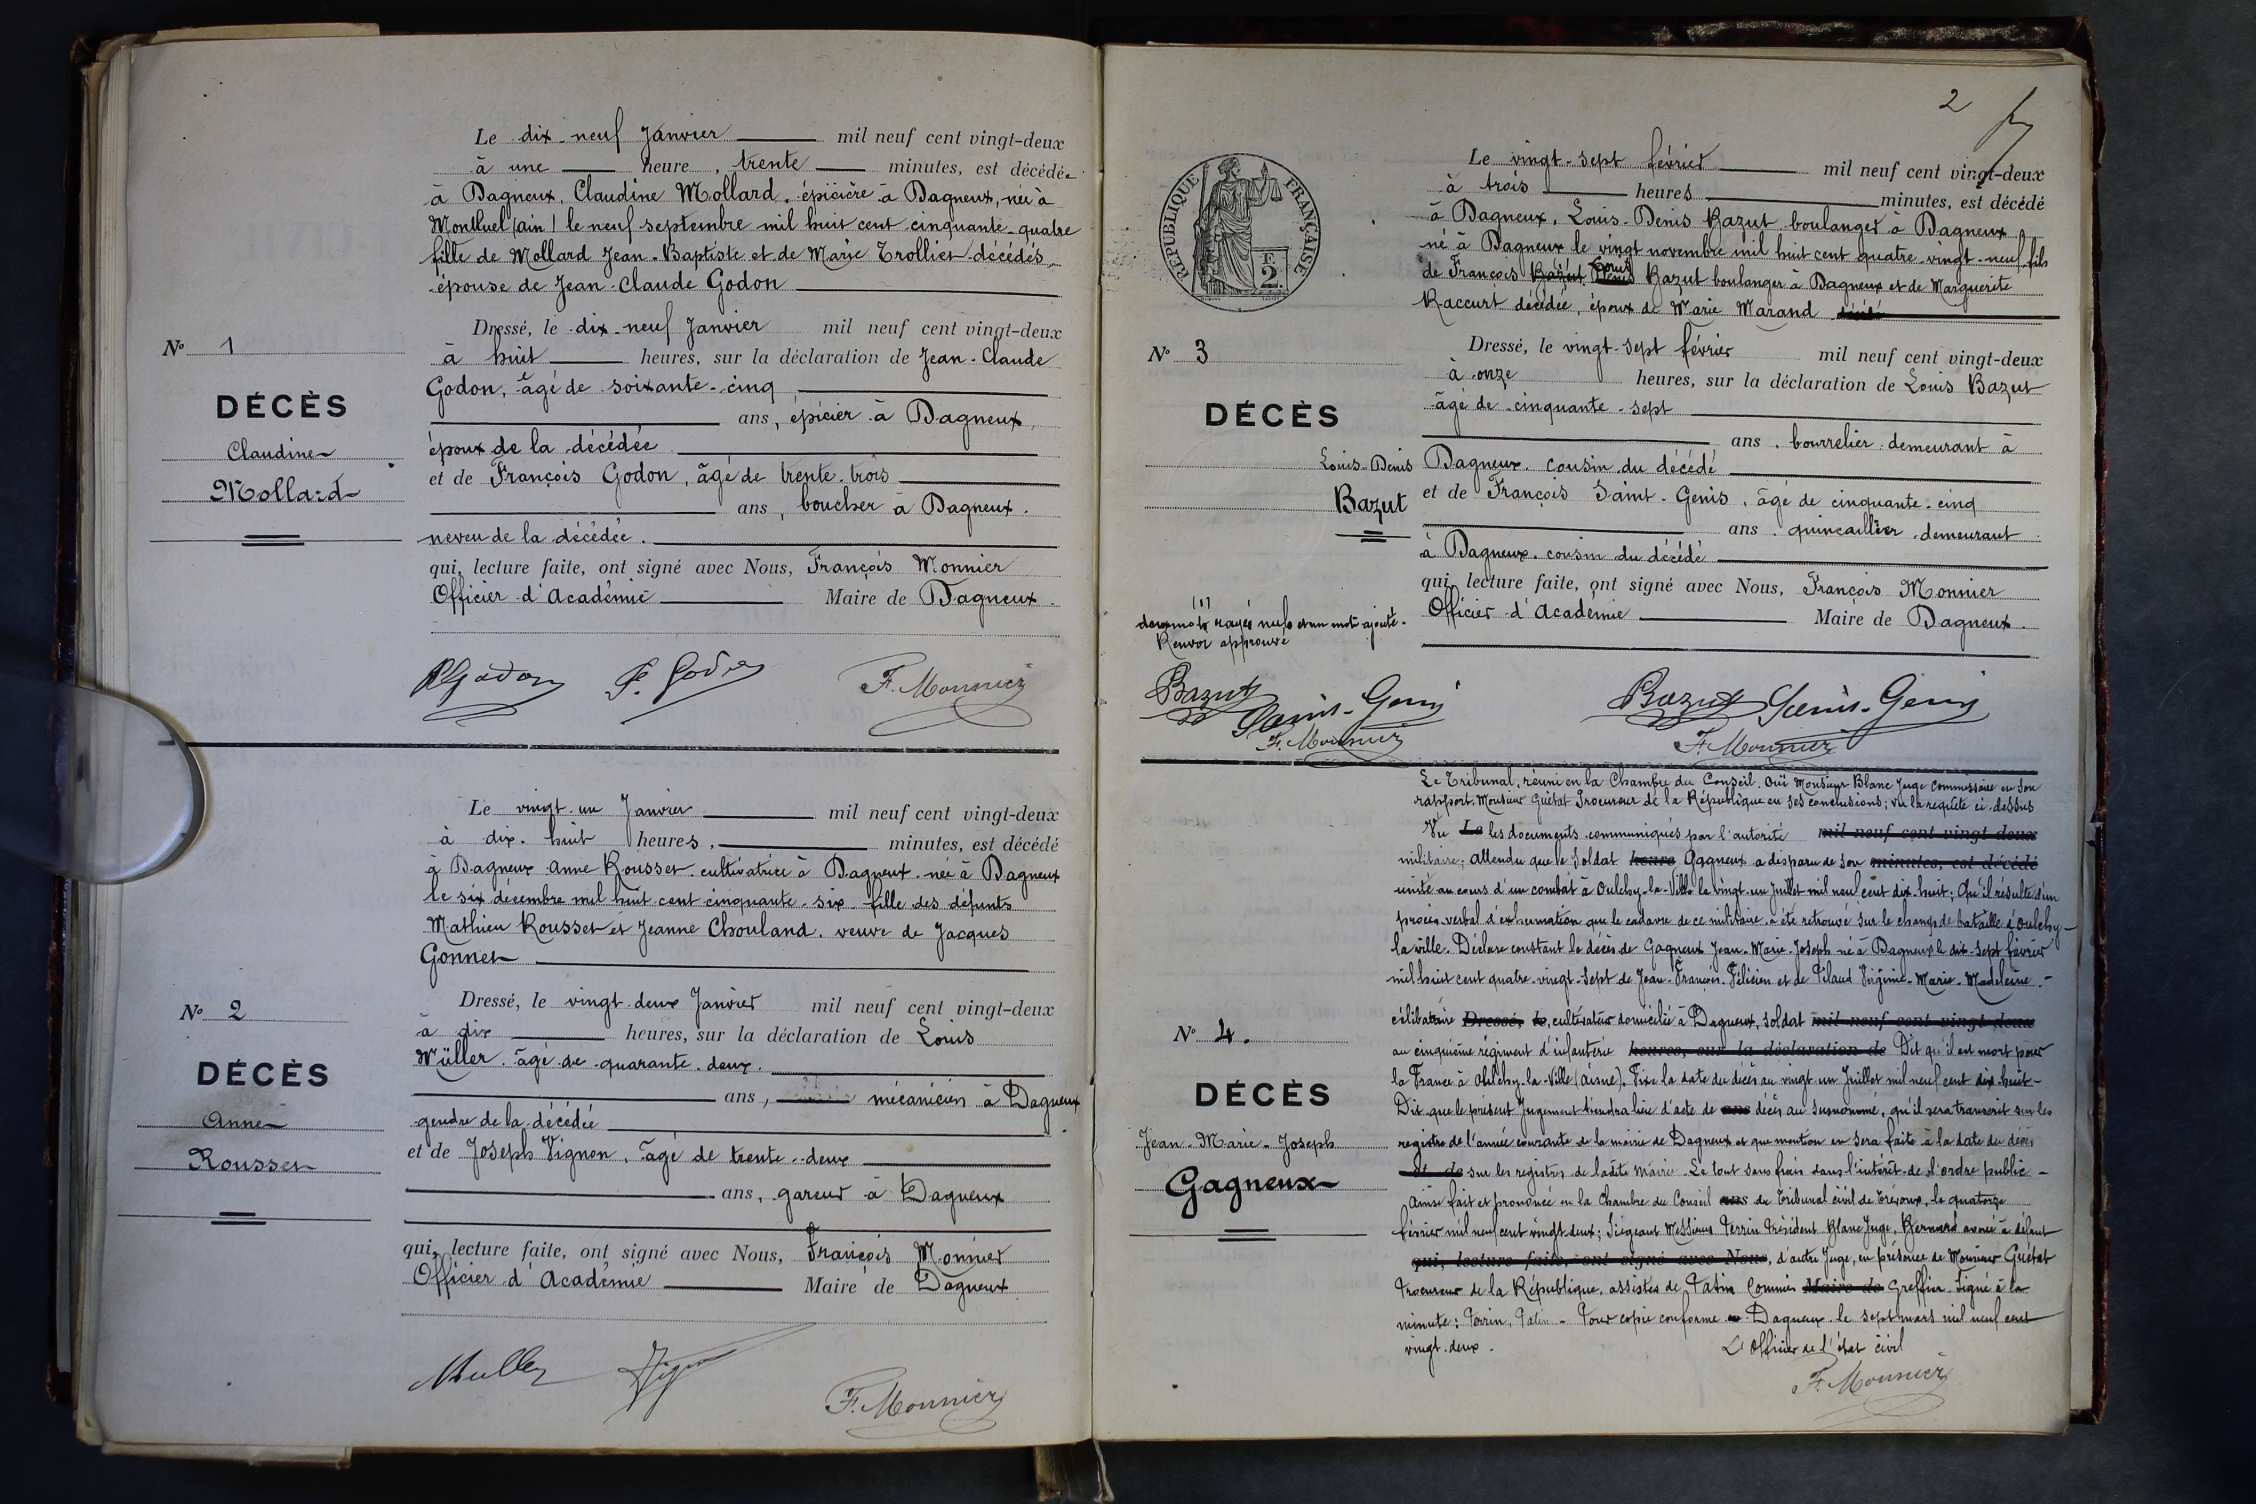 Le dix-neuf Janvier mil neuf cent vingt-deux
à une heure, trente minutes, est décédée
à Dagneux, Claudine Mollard, épicière à Dagneux, née à
Montluel (Ain) le neuf septembre mil huit cent cinquante-quatre
fille de Mollard Jean-Baptiste et de Marie Trollier décédés,
épouse de Jean-Claude Godon
Dressé, le dix-neuf Janvier mil neuf cent vingt-deux
à huit heures, sur la déclaration de Jean-Claude
Godon, âgé de soixante-cinq
ans, épicier à Dagneux,
époux de la décédée
et de François Godon, âgé de trente-trois
ans, boucher à Dagneux.
neveu de la décédée.
qui, lecture faite, ont signé avec Nous, François Monnier
Officier d'Académie Maire de Dagneux.
No 1
DÉCÈS
Claudine
Mollard
F. Godon F. Monnier
Le vingt-un Janvier mil neuf cent vingt-deux
à dix-huit heures, minutes, est décédé
à Dagneux Anne Rousset cultivatrice à Dagneux née à Dagneux
le six décembre mil huit cent cinquante-six fille des défunts
Mathieu Rousset et Jeanne Chouland. veuve de Jacques
Gonnet
Dressé, le vingt-deux Janvier mil neuf cent vingt-deux
à dix heures, sur la déclaration de Louis
Müller. âgé de quarante-deux.
ans, mécanicien à Dagneux
gendre de la décédée
et de Joseph Vignon, âgé de trente-deux
ans, gareur à Dagneux
qui, lecture faite, ont signé avec Nous, François Monnier
Officier d'Académie Maire de Dagneux
No 2
DÉCÈS
Anne
Rousset
Muller F. Monnier
2
RÉPUBLIQUE FRANÇAISE
2F
Le vingt-sept février mil neuf cent vingt-deux
à trois heures minutes, est décédé
à Dagneux, Louis-Denis Bazut boulanger à Dagneux
né à Dagneux le vingt novembre mil huit cent quatre-vingt-neuf, fils
de François Bazut Louis Denis Bazut boulanger à Dagneux et de Marguerite
Raccurt décédée, époux de Marie Marand
Dressé, le vingt-sept février mil neuf cent vingt-deux
à onze heures, sur la déclaration de Louis Bazut
âgé de cinquante-sept
ans. bourrelier demeurant à
Dagneux. cousin du décédé
et de François Saint-Genis, âgé de cinquante-cinq
ans. quincaillier demeurant
à Dagneux. cousin du décédé
qui, lecture faite, ont signé avec Nous, François Monnier
Officier d'Académie Maire de Dagneux.
No 3
DÉCÈS
Louis-Denis
Bazut
(1)
deux mots rayés nuls et un mot ajouté.
Renvoi approuvé
Bazut
Saint-Genis
F. Monnier
Bazut Saint-Genis
F. Monnier
Le Tribunal, réuni en la Chambre du Conseil. Ouï Monsieur Blanc Juge Commissaire en son
rapport, Monsieur Guétat Procureur de la République en ses conclusions; vu la requête ci-dessus
Vu Le les documents communiqués par l'autorité mil neuf cent vingt-deux
militaire; Attendu que le Soldat heure Gagneux a disparu de son minutes, est décédé
unité au cours d'un combat à Oulchy-la-Ville le vingt-un Juillet mil neuf cent dix-huit; Qu'il résulte d'un
procès-verbal d'exhumation que le cadavre de ce militaire a été retrouvé sur le champ de bataille d'Oulchy-
la-ville. Déclare constant le décès de Gagneux Jean-Marie-Joseph né à Dagneux le dix-sept février
mil huit cent quatre-vingt-sept de Jean-François-Félicien et de Pilaud Virginie-Marie-Madeleine.-
célibataire Dressé, le, cultivateur domicilié à Dagneux, soldat mil neuf cent vingt-deux
au cinquième régiment d'infanterie heures, sur la déclaration de Dit qu'il est mort pour
la France à Oulchy-la-Ville (Aisne). Fixe la date du décès au vingt-un Juillet mil neuf cent dix-huit-
Dit que le présent Jugement tiendra lieu d'acte de ans décès au susnommé, qu'il sera transcrit sur les
registres de l'année courante de la mairie de Dagneux et que mention en sera faite à la date du décès
et de sur les registres de ladite Mairie. Le tout sans frais dans l'intérêt de l'ordre public-
Ainsi fait et prononcé en la Chambre du Conseil ans du Tribunal civil de Trévoux, le quatorze
février mil neuf cent vingt-deux; Siégeant Messieurs Perrin Président Blanc Juge, Bernard avoué à défaut
qui, lecture faite, ont signé avec Nous, d'autre Juge, en présence de Monsieur Guétat
Procureur de la République, assistés de Patin Commis Maire de Greffier. Signé à la
minute: Perrin, Patin - Pour copie conforme Dagneux le sept mars mil neuf cent
vingt-deux.
L'Officier de l'état civil
F. Monnier
No 4.
DÉCÈS
Jean-Marie-Joseph
Gagneux